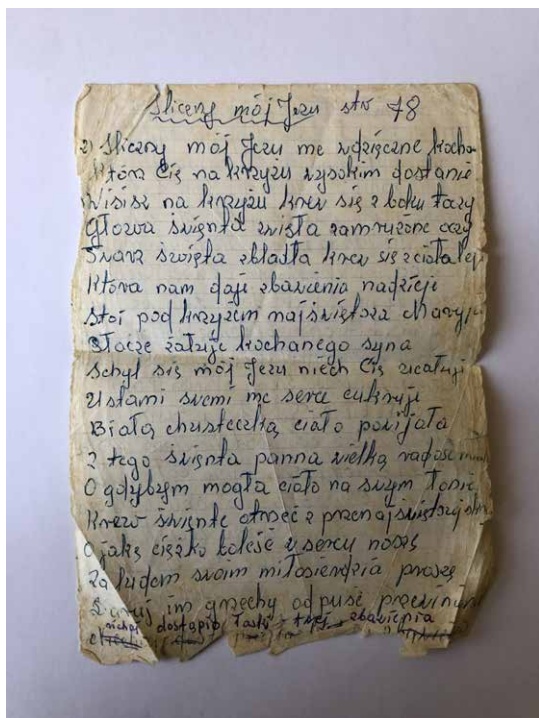 Sliczny mój Jezu str 78
2) Sliczny mój Jezu me wdzięczne kocha
Która Cię na krzyżu wysokim dostanie
Wisisz na krzyżu krew się z boku taczy
Głowa święnta zwisła zamrużone oczy
Twarz święta zbladła krew się z ciała leji
Która nam daji zbawienia nadzieji
Stoi pod krzyżem najświętsza Maryja
Płacze żałuje kochanego syna
Schyl się mój Jezu niech Cię ucałuji
Ustami swemi me serce cukruji
Białą chusteczką ciało powijała
Z tego święnta panna wielką radość
O gdybym mogła ciało na swym łonie
Krew święnte otrzeć z przenajświętszyj
O jaką ciężko boleść w sercu noszę
Za ludem swoim miłosierdzia proszę
Daruj im grzechy odpuść przewinin
niechaj dostąpio łaski twej zbawienia